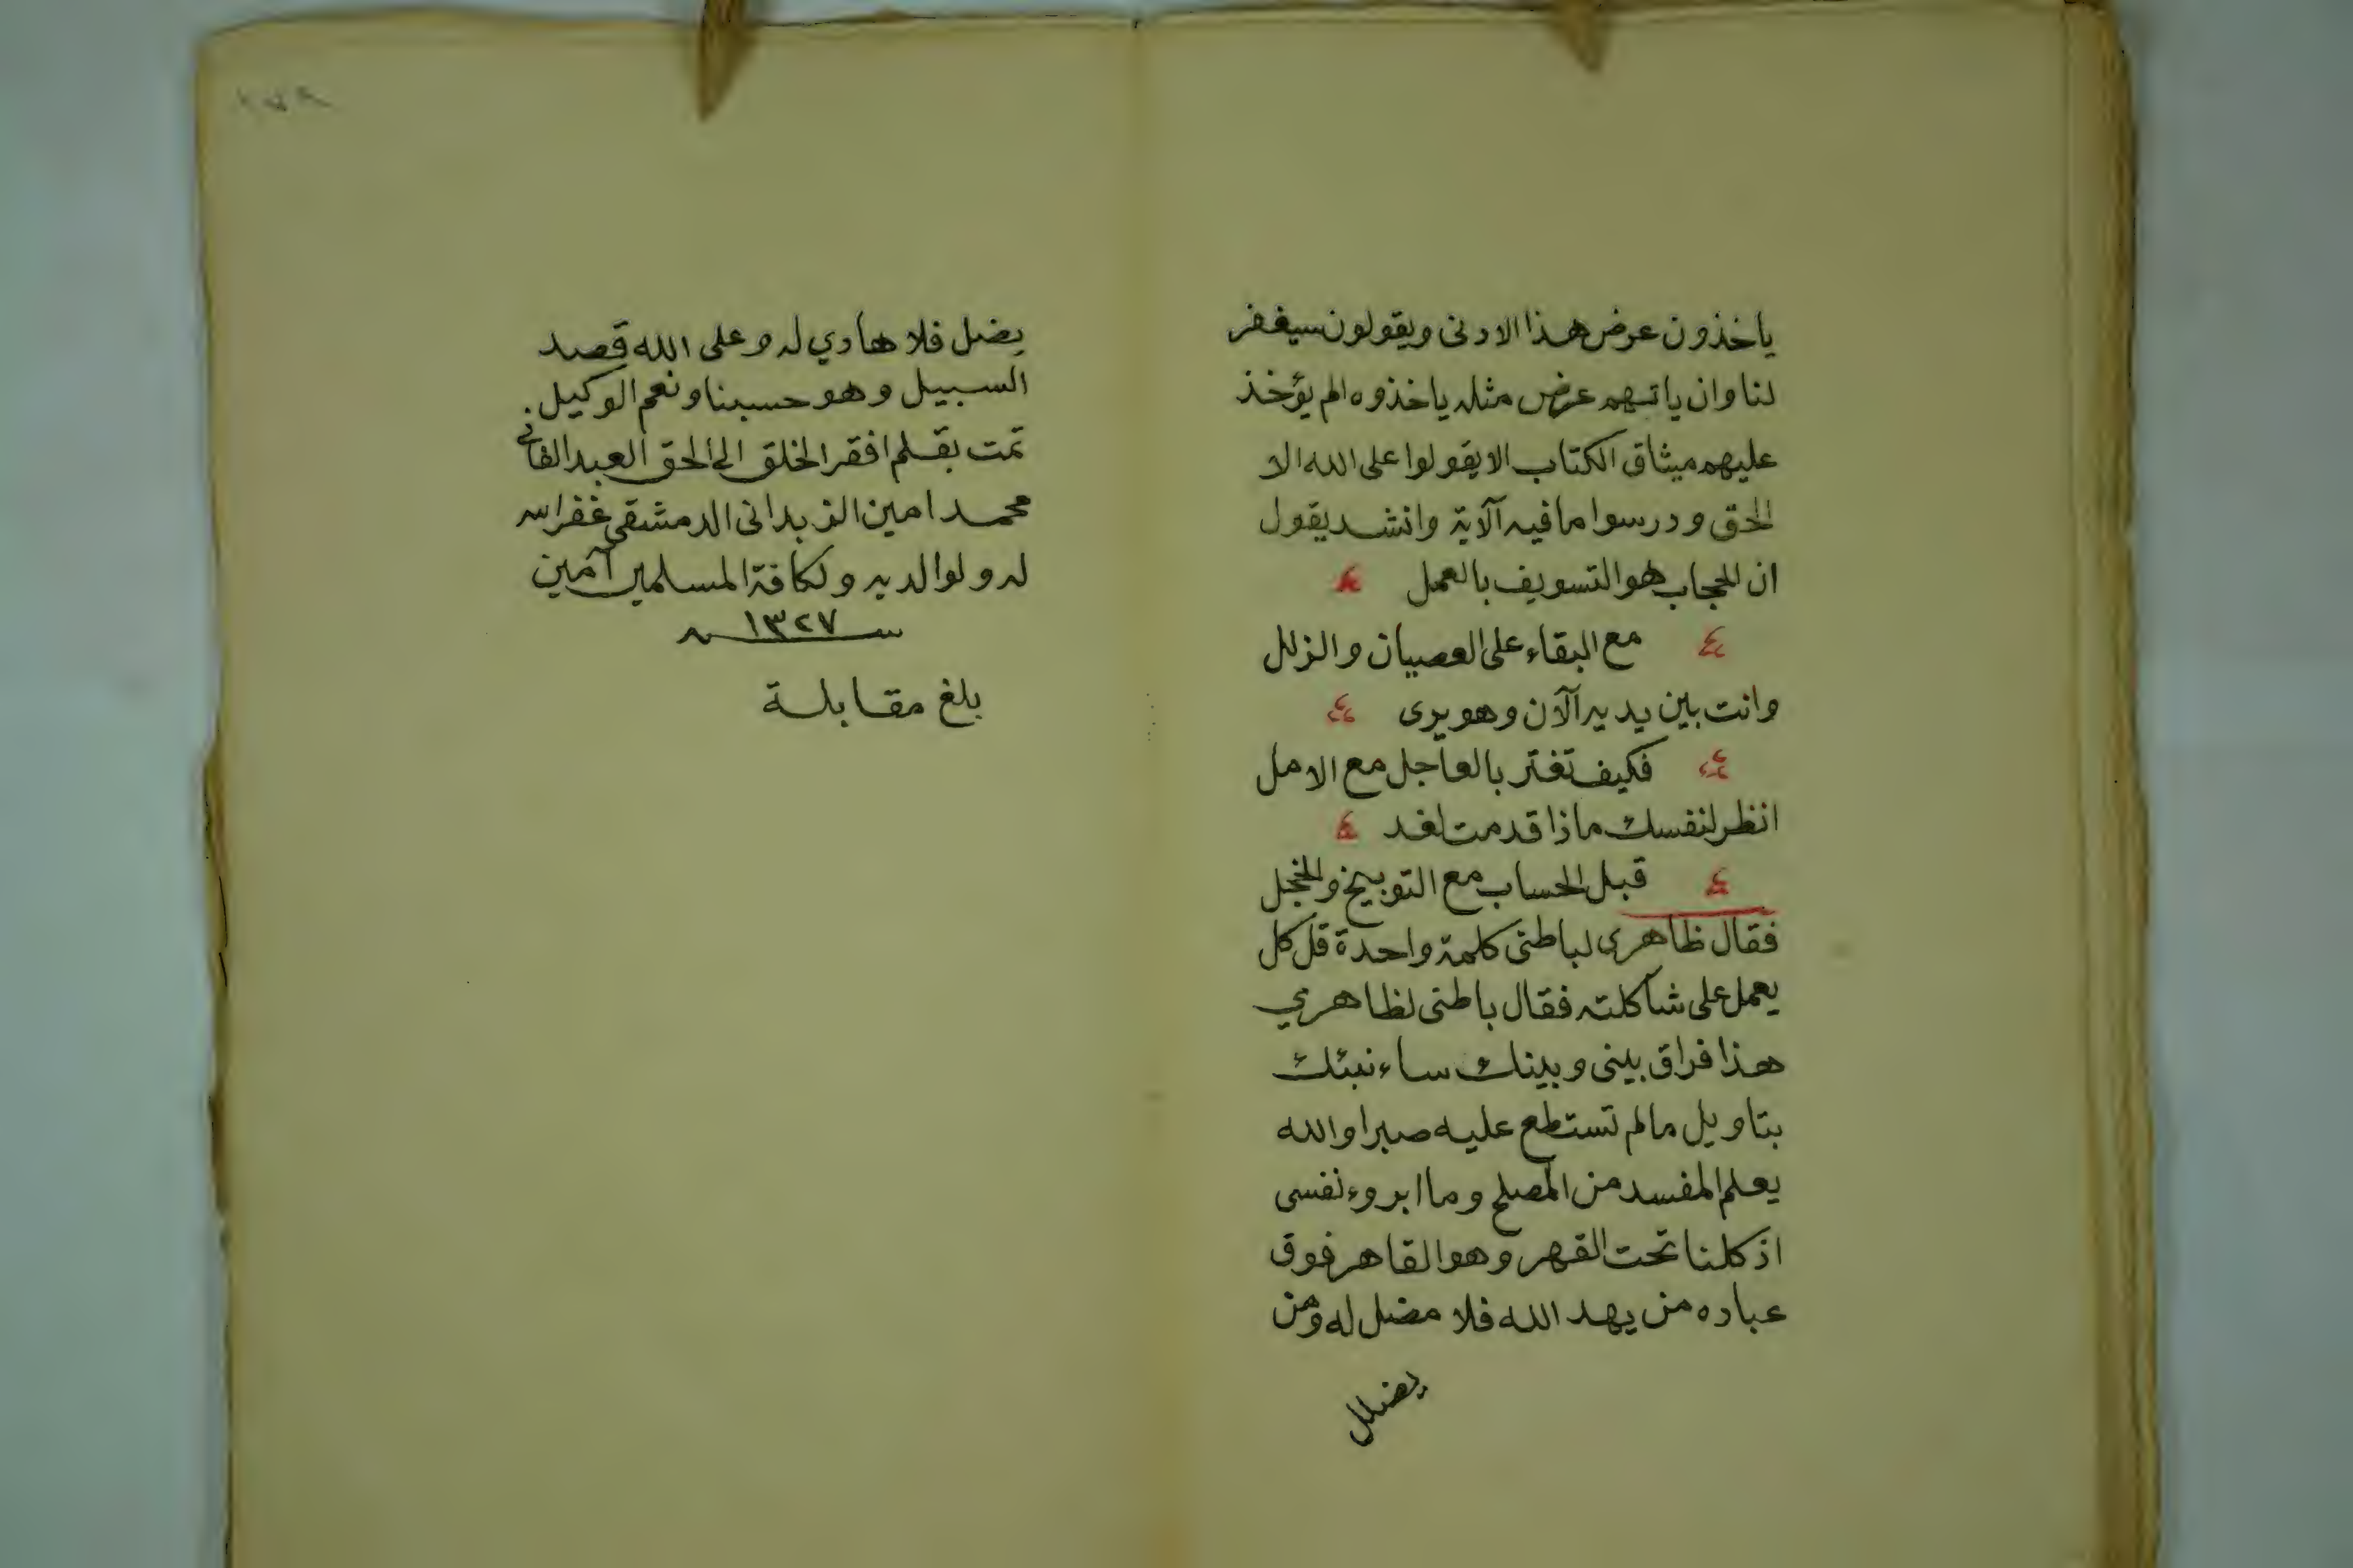 ياخذون عرض هذا الادنى ويقولون سيغفر
لنا وان ياتهم عرض مثله ياخذوه الم يؤخذ
عليهم ميثاق الكتاب الا يقولوا على الله الا
الحق ودرسوا ما فيه الآية وانشد يقول
ان الحجاب هو التسويف بالعمل
مع البقاء على العصيان والزلل
وانت بين يديه الآن وهو يرى
فكيف تغتر بالعاجل مع الامل
انظر لنفسك ماذا قدمت لغد
قبل الحساب مع التوبيخ والخجل
فقال ظاهرى لباطنى كلمة واحدة قل كل
يعمل على شاكلته فقال باطنى لظاهري
هذا فراق بينى وبينك ساءنبئك
بتاويل مالم تستطع عليه صبرا والله
يعلم المفسد من المصلح وما ابروء نفسى
اذ كلنا تحت القهر وهو القاهر فوق
عباده من يهد الله فلا مضل له ومن
يضلل
يضل فلا هادي له وعلى الله قصد
السبيل وهو حسبنا ونعم الوكيل.
تمت بقلم افقر الخلق الى الحق العبد الفانى
محمد امين الزبدانى الدمشقى غفر الله
له ولوالديه ولكافة المسلمين آمين
سنة ١٣٢٧
بلغ مقابلة